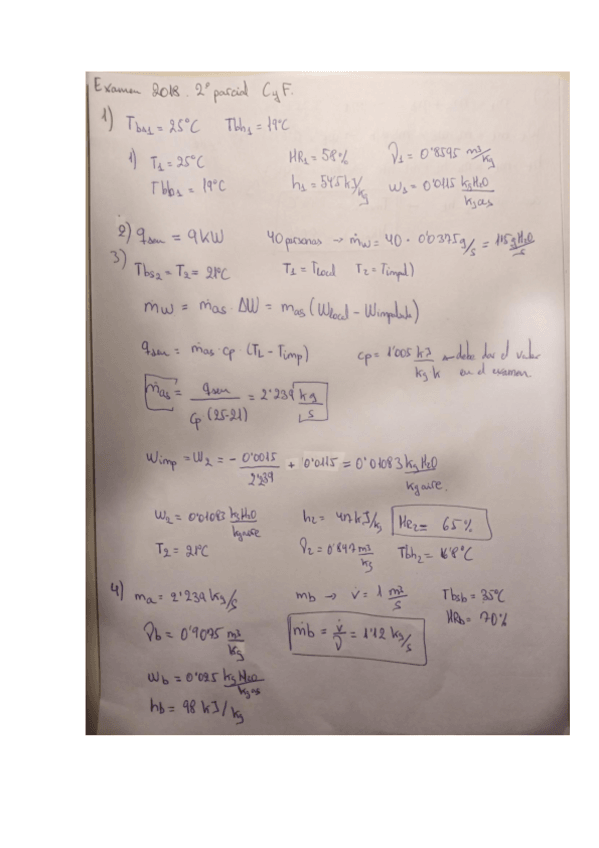 Examen 2018. 2º parcial CyF.
1) Tbs1 = 25°C Tbh1 = 19°C
1) T1 = 25°C HR1 = 58% ν1 = 0'8595 m3/kg
Tbh1 = 19°C h1 = 54'5 kJ/kg w1 = 0'0115 kg H2O/kg as
2) qsen = 9 kW 40 personas → ṁw = 40 · 0'0375 g/s = 1'5 g H2O/s
3) Tbs2 = T2 = 21°C T1 = Tlocal T2 = Timpul)
mw = ṁas · ΔW = ṁas (Wlocal - Wimpulado)
qsen = ṁas · cp · (TL - Timp) cp = 1'005 kJ/kg k debe dar el valor en el examen
ṁas = qsen/cp (25-21) = 2'239 kg/s
Wimp = W2 = - 0'0015/2'239 + 0'0115 = 0'01083 kg H2O/kg aire.
W2 = 0'01083 kg H2O/kg aire h2 = 47 kJ/kg HR2 = 65%
T2 = 21°C ν2 = 0'847 m3/kg Tbh2 = 16'8°C
4) ma = 2'239 kg/s mb → v̇ = 1 m3/s Tbsb = 35°C
HRb = 70%
νb = 0'9075 m3/kg ṁb = v̇/ν = 1'12 kg/s
wb = 0'025 kg H2O/kg as
hb = 98 kJ/kg